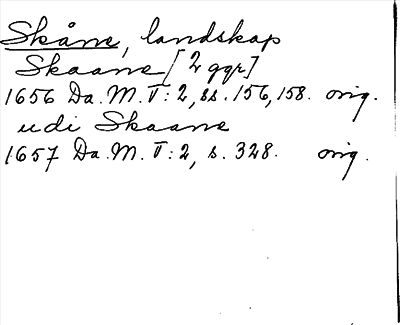 Skåne, landskap
Skaane [2 ggr]
1656 Da. M. V:2, ss. 156, 158. orig.
udi Skaane
1657 Da. M. V:2, s. 328. orig.